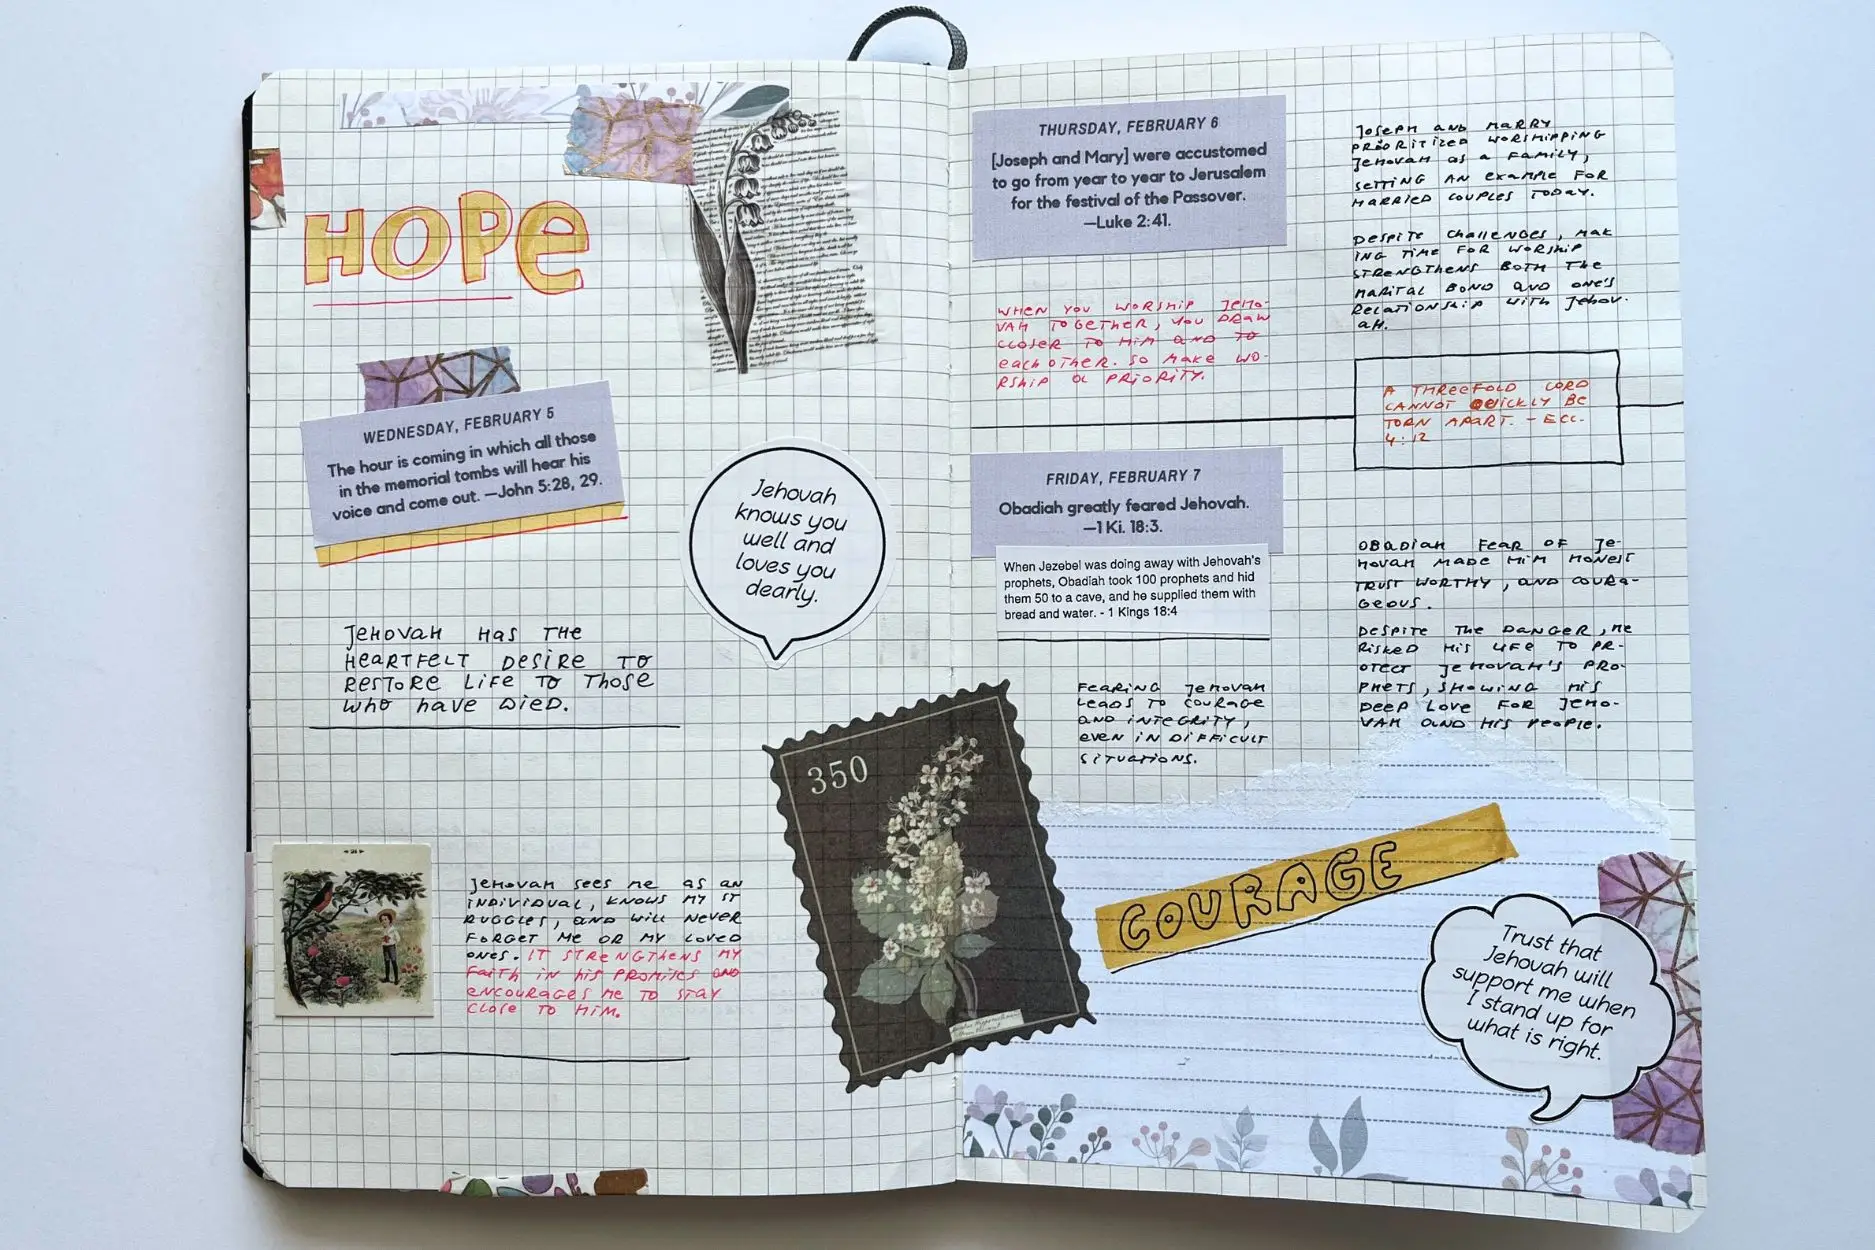 HOPE
WEDNESDAY, FEBRUARY 5
The hour is coming in which all those
in the memorial tombs will hear his
voice and come out. —John 5:28, 29.
Jehovah
knows you
well and
loves you
dearly.
JEHOVAH HAS THE
HEARTFELT DESIRE TO
RESTORE LIFE TO THOSE
WHO HAVE DIED.
JEHOVAH SEES ME AS AN
INDIVIDUAL, KNOWS MY ST
RUGGLES, AND WILL NEVER
FORGET ME OR MY LOVED
ONES. IT STRENGTHENS MY
FAITH IN HIS PROMISES AND
ENCOURAGES ME TO STAY
CLOSE TO HIM.
350
THURSDAY, FEBRUARY 6
[Joseph and Mary] were accustomed
to go from year to year to Jerusalem
for the festival of the Passover.
—Luke 2:41.
WHEN YOU WORSHIP JEHO-
VAH TOGETHER, YOU DRAW
CLOSER TO HIM AND TO
EACH OTHER. SO MAKE WO-
RSHIP A PRIORITY.
JOSEPH AND MARRY
PRIORITIZED WORSHIPPING
JEHOVAH AS A FAMILY,
SETTING AN EXAMPLE FOR
MARRIED COUPLES TODAY.
DESPITE CHALLENGES, MAK
ING TIME FOR WORSHIP
STRENGTHENS BOTH THE
MARITAL BOND AND ONE'S
RELATIONSHIP WITH JEHOV-
AH.
A THREEFOLD CORD
CANNOT QUICKLY BE
TORN APART. - ECC.
4:12
FRIDAY, FEBRUARY 7
Obadiah greatly feared Jehovah.
—1 Ki. 18:3.
When Jezebel was doing away with Jehovah's
prophets, Obadiah took 100 prophets and hid
them 50 to a cave, and he supplied them with
bread and water. - 1 Kings 18:4
FEARING JEHOVAH
LEADS TO COURAGE
AND INTEGRITY,
EVEN IN DIFFICULT
SITUATIONS.
OBADIAH FEAR OF JE-
HOVAH MADE HIM HONEST
TRUST WORTHY, AND COURA-
GEOUS.
DESPITE THE DANGER, HE
RISKED HIS LIFE TO PR-
OTECT JEHOVAH'S PRO-
PHETS, SHOWING HIS
DEEP LOVE FOR JEHO-
VAH AND HIS PEOPLE.
COURAGE
Trust that
Jehovah will
support me when
I stand up for
what is right.